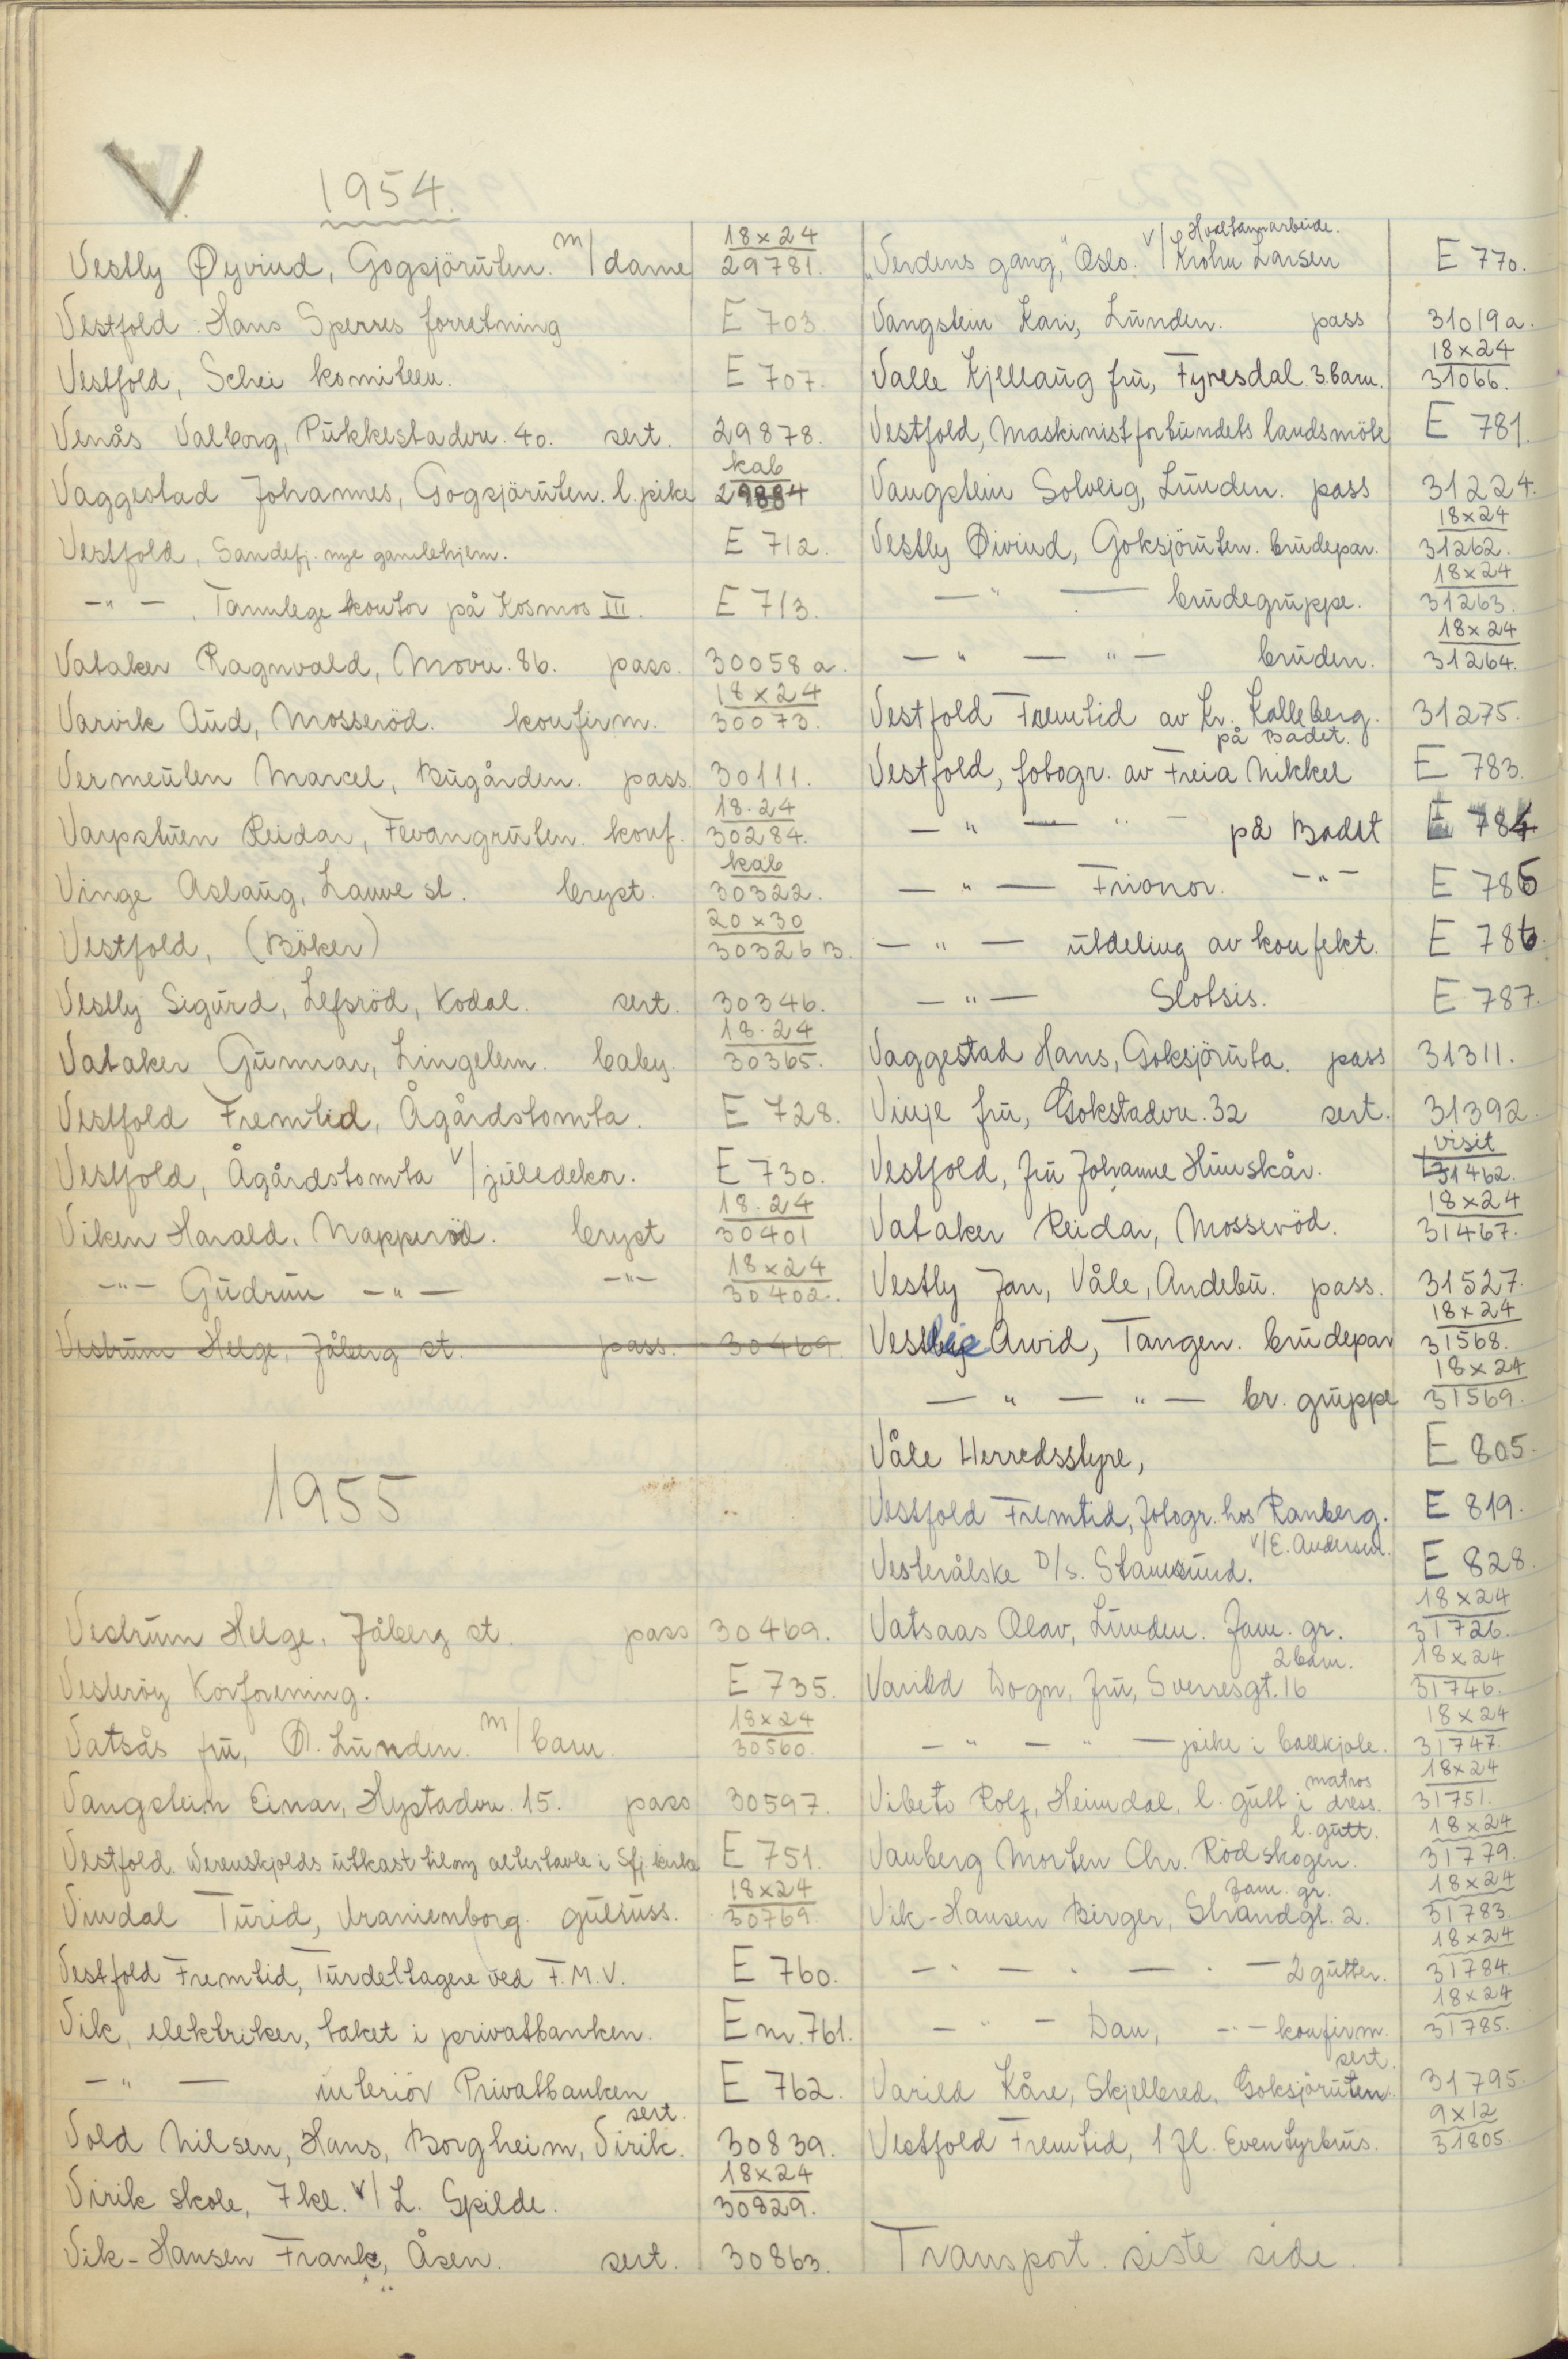 V.
1954.
Vestly Øyvind, Gogsjöruten. m/dame 18x24 29781.
Vestfold. Hans Sperres forretning E 703
Vestfold, Schei komiteen. E 707.
Venås Valborg, Pukkestadvn. 40. sert. 29878.
Vaggestad Johannes, Gogsjöruten. l. pike kab 29884
Vestfold, Sandefj. nye gamlehjem. E 712.
-"- , Tannlege kontor på Kosmos III. E 713.
Vataker Ragnvald, Movn. 86. pass. 30058 a.
Varvik Aud, Mosseröd. konfirm. 18x24 30073.
Vermeulen Marcel, Bugården. pass. 30111.
Varpstuen Reidar, Fevangruten. konf. 18.24 30284.
Vinge Aslaug, Lauve st. bryst. kab 30322.
Vestfold, (Böker) 20x30 30326 B.
Vestly Sigurd, Lefsröd, Kodal. sert. 30346.
Vataker Gunnar, Lingelem. baby. 18.24 30365.
Vestfold Fremtid, Ågårdstomta. E 728.
Vestfold, Ågårdstomta v/juledekor. E 730.
Viken Harald, Napperöd. bryst 18.24 30401
-"- Gudrun -"- -"- 18x24 30402.
Vestrum Helge, Jåberg st. pass. 30469.
1955
Vestrum Helge, Jåberg st. pass 30469.
Vesteröy Korforening. E 735.
Vatsås fru, O. Lunden. m/barn. 18x24 30560.
Vangstein Einar, Hystadvn. 15. pass 30597.
Vestfold. Werenskjolds utkast til ny altertavle i Sfj. kirke E 751.
Vindal Turid, Uranienborg. gullruss. 18x24 30769.
Vestfold Fremtid, Turdeltagere ved F.M.V. E 760.
Vik, elektriker, taket i privatbanken. E nr. 761.
-"- interiör Privatbanken E 762.
Vold Nilsen, Hans, Borgheim, Virik. sert. 30839.
Virik skole, 7 kl. v/ L. Spilde. 18x24 30829.
Vik-Hansen Frank, Åsen. sert. 30863.
"Verdens gang," Oslo. v/Krohn Larsen Hvaltannarbeide. E 770.
Vangstein Kari, Lunden. pass 31019a.
Valle Kjellaug fru, Fyresdal. 3. barn. 18x24 31066.
Vestfold, Maskinistforbundets landsmöte E 781.
Vangstein Solveig, Lunden. pass 31224.
Vestly Öivind, Goksjöruten. brudepar. 18x24 31262.
-"- brudegruppe. 18x24 31263.
-"-"- bruden. 18x24 31264.
Vestfold Fremtid av Kr. Kalleberg. 31275.
Vestfold, fotogr. av Freia Nikkel på Badet. E 783.
-"-"- på Badet E 784
-"- Frionor. -"- E 785
-"- utdeling av konfekt. E 786
-"- Slotsis. E 787.
Vaggestad Hans, Goksjöruta. pass 31311.
Vinje fru, Gokstadvn. 32 sert. 31392
Vestfold, fru Johanne Himskår. visit 31462.
Vataker Reidar, Mosseröd. 18x24 31467.
Vestly Jan, Våle, Andebu. pass. 31527.
Arvid, Tangen. brudepar 18x24 31568.
-"-"- br. gruppe 18x24 31569.
Våle Herredsstyre, E 805.
Vestfold Fremtid, fotogr. hos Ranberg. E 819.
Vesterålske D/s. Stamsund. v/E. Andersen. E 828.
Vatsaas Olav, Lunden. Fam. gr. 18x24 31726.
Varild Dogn, fru, Sverresgt. 16 2 barn. 18x24 31746.
-"-"- pike i ballkjole. 18x24 31747.
Vibeto Rolf, Heimdal, l. gutt i matros dress. 18x24 31751.
Vanberg Morten Chr. Rödskogen. l. gutt. 18x24 31779.
Vik-Hansen Birger, Strandgt. 2. Fam. gr. 18x24 31783.
-"-"-"- 2 gutter. 18x24 31784.
-"- Dan, -"- konfirm. 18x24 31785.
Varild Kåre, Skjellered, Goksjöruten. sert. 31795.
Vestfold Fremtid, 1 fl. Eventyrbrus. 9x12 31805.
Transport siste side.